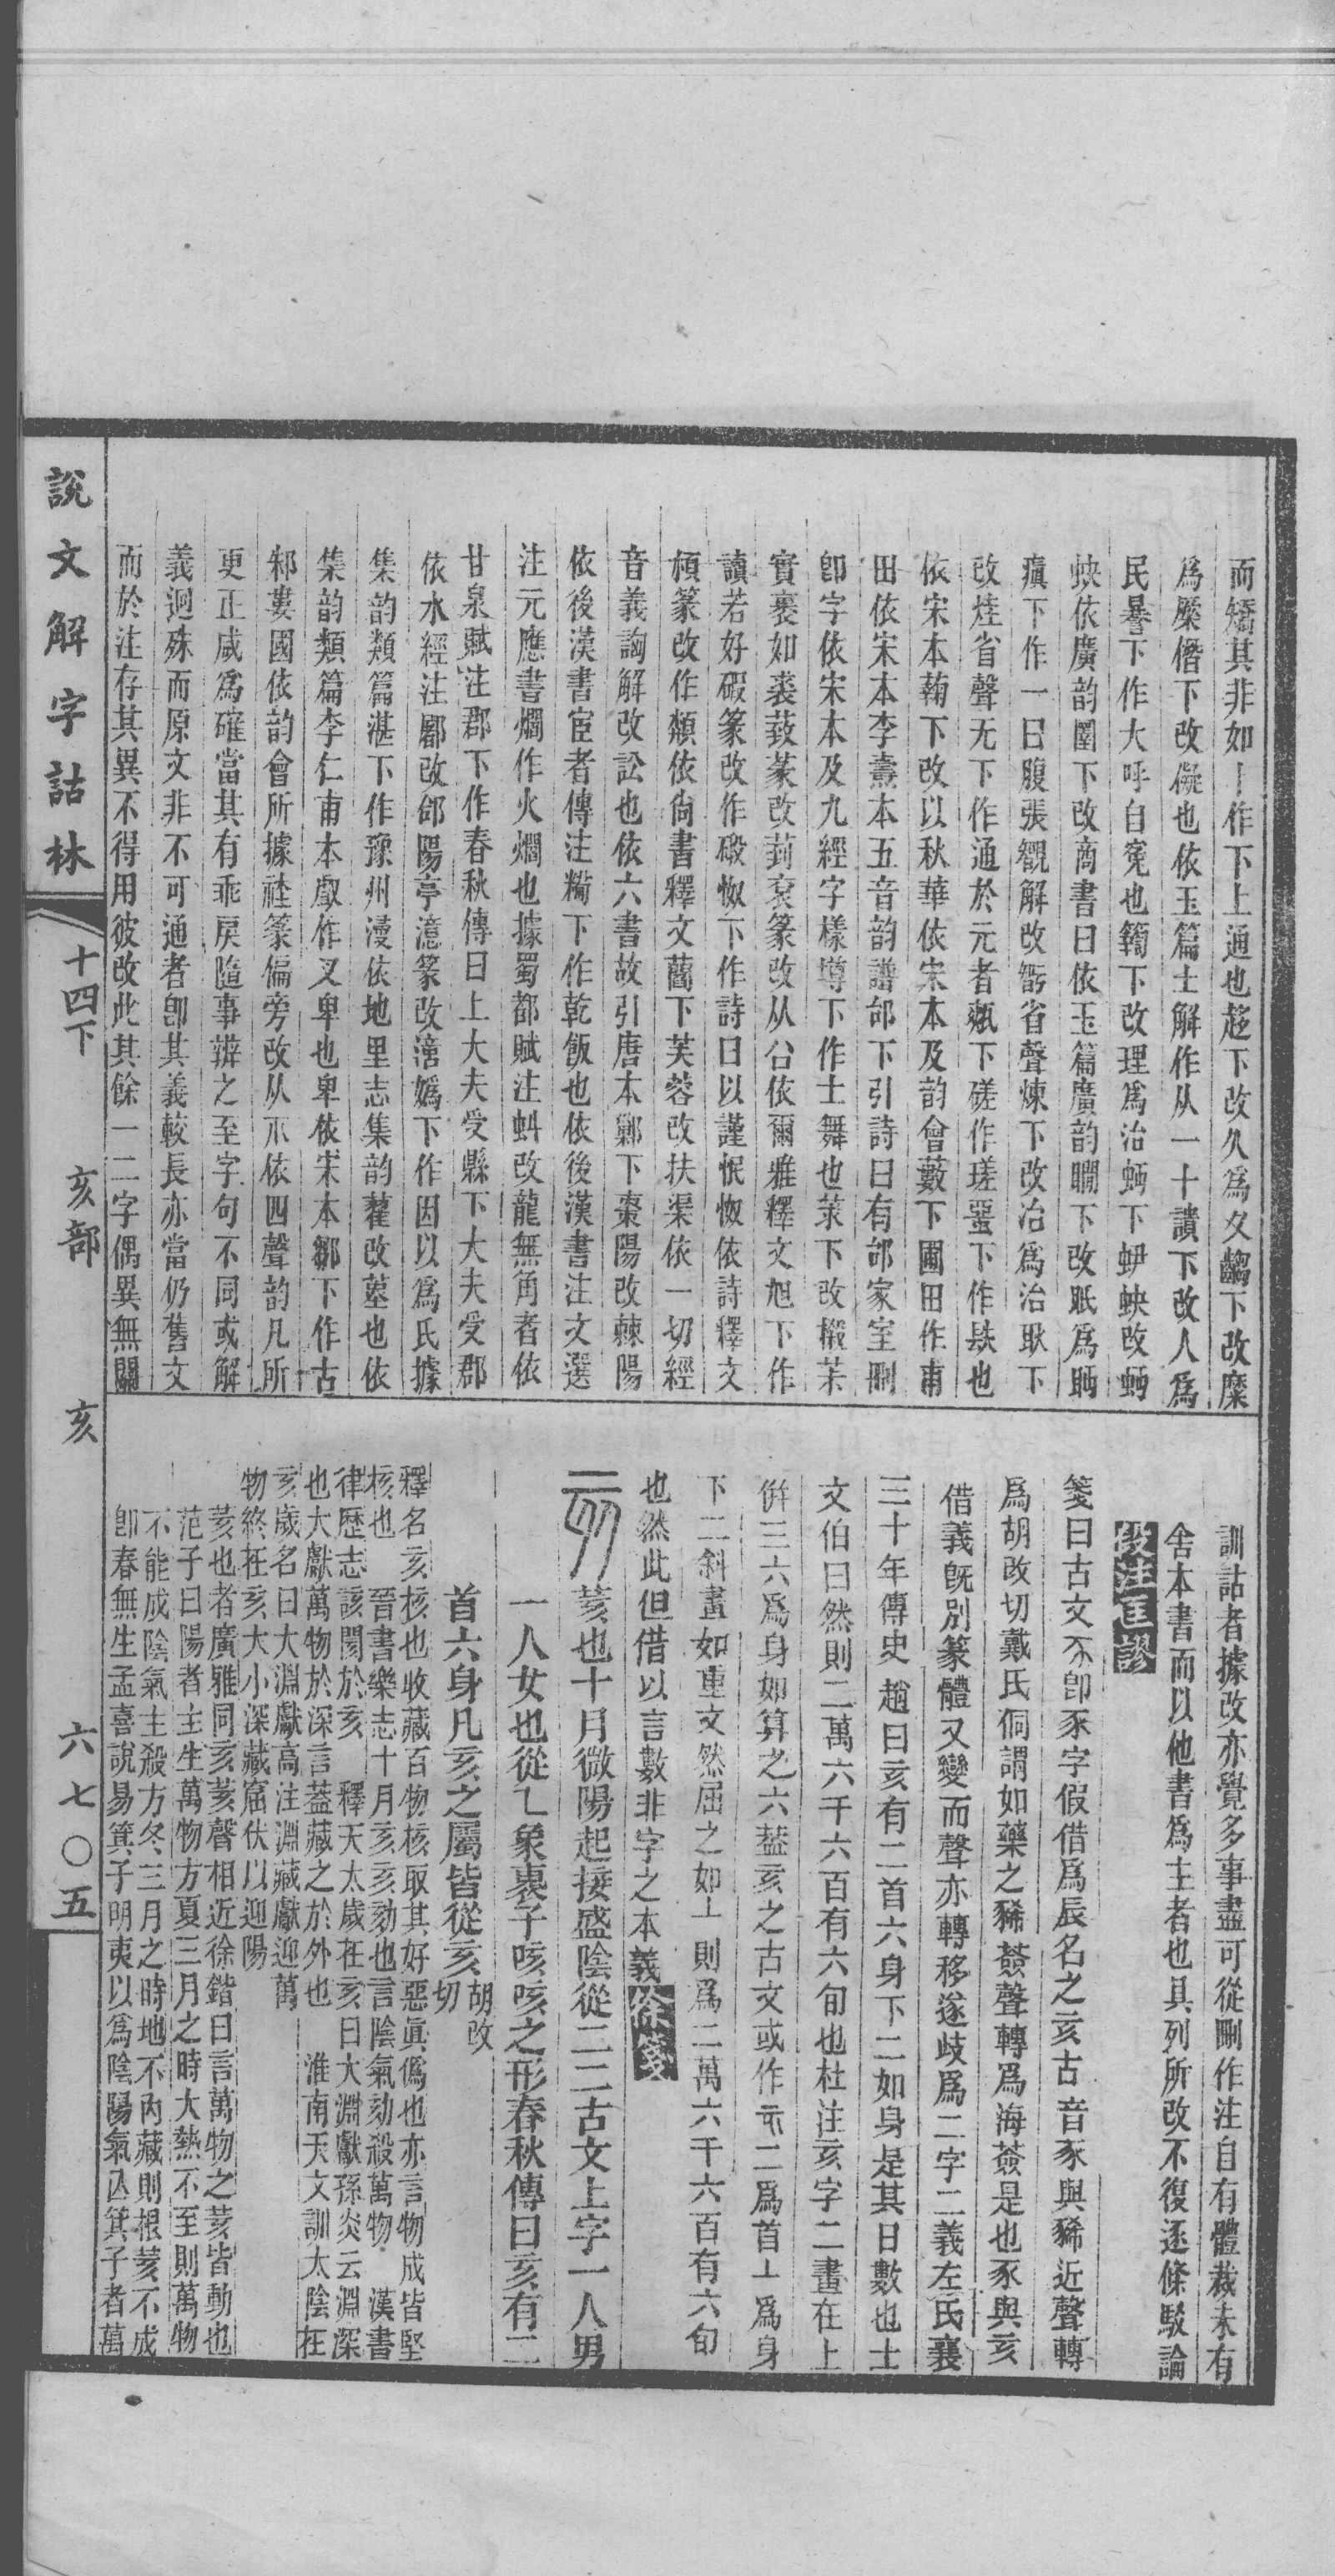 而矯其非如丨作下上通也趍下改久爲夂齺下改糜
爲糜僭下改儗也依玉篇士解作从一十讀下改人爲
民暴下作大呼自寃也籀下改理爲治蛃下蛜蛈改蛃
蛈依廣韵圛下改商書曰依玉篇廣韵瞯下改眂爲眄
瘨下作一曰腹張覬解改省聲煉下改冶爲治耿下
改烓省聲无下作通於元者下磋作瑳蛩下作镻也
依宋本蘜下改以秋華依宋本及韵會藪下圃田作甫
田依宋本李燾本五音韵譜邰下引詩曰有邰家室刪
卽字依宋本及九經字樣壿下作士舞也茮下改椴茮
實褱如裘菣篆改葑袞篆改从㕣依爾雅釋文旭下作
讀若好碬篆改作碫怓下作詩曰以謹惽怓依詩釋文
頯篆改作頮依尙書釋文藺下芙蓉改扶渠依一切經
音義訩解改訟也依六書故引唐本鄭下棗陽改棘陽
依後漢書宦者傳注糒下作乾飯也依後漢書注文選
注元應書爓作火爓也據蜀都賦注蚪改龍無角者依
甘泉賦注郡下作春秋傳曰上大夫受縣下大夫受郡
依水經注鄏改郃陽亭澺篆改澺嬀下作因以爲氏據
集韵類篇湛下作豫州漫依地里志集韵藋改堇也依
集韵類篇李仁甫本㪫作叉卑也卑依宋本鄒下作古
邾婁國依韵會所據祘篆偏旁改从朩依四聲韵凡所
更正咸爲確當其有乖戾隨事辨之至字句不同或解
義迥殊而原文非不可通者卽其義較長亦當仍舊文
而於注存其異不得用彼改此其餘一二字偶異無關
訓詁者據改亦覺多事盡可從刪作注自有體裁未有
舍本書而以他書爲主者也具列所改不復逐條駁論
段注匡謬
箋曰古文卽豕字假借爲辰名之亥古音豕與豨近聲轉
爲胡改切戴氏侗謂如藥之豨薟聲轉爲海薟是也豕與亥
借義旣別篆體又變而聲亦轉移遂歧爲二字二義左氏襄
三十年傳史趙曰亥有二首六身下二如身是其日數也士
文伯曰然則二萬六千六百有六旬也杜注亥字二畫在上
併三六爲身如算之六葢亥之古文或作二爲首丄爲身
下二斜畫如重文然屈之如丄則爲二萬六千六百有六旬
也然此但借以言數非字之本義徐箋
荄也十月微陽起接盛陰從二二古文上字一人男
一人女也從乙象褢子咳咳之形春秋傳曰亥有二
首六身凡亥之屬皆從亥胡改切
釋名亥核也收藏百物核取其好惡眞僞也亦言物成皆堅
核也　晉書樂志十月亥亥劾也言陰氣劾殺萬物　漢書
律歷志該閡於亥　釋天太歲在亥曰大淵獻孫炎云淵深
也大獻萬物於深言葢藏之於外也　淮南天文訓太陰在
亥歲名曰大淵獻高注淵藏獻迎萬
物終在亥大小深藏窟伏以迎陽
荄也者廣雅同亥荄聲相近徐鍇曰言萬物之荄皆動也
范子曰陽者主生萬物方夏三月之時大熱不至則萬物
不能成陰氣主殺方冬三月之時地不內藏則根荄不成
卽春無生孟喜說易箕子明夷以爲陰陽氣亾箕子者萬
說文解字詁林
十四下
亥部
亥
六七〇五